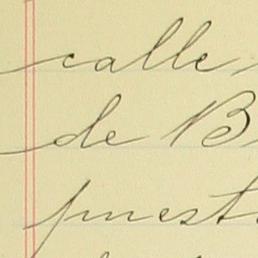 calle
de B
puest